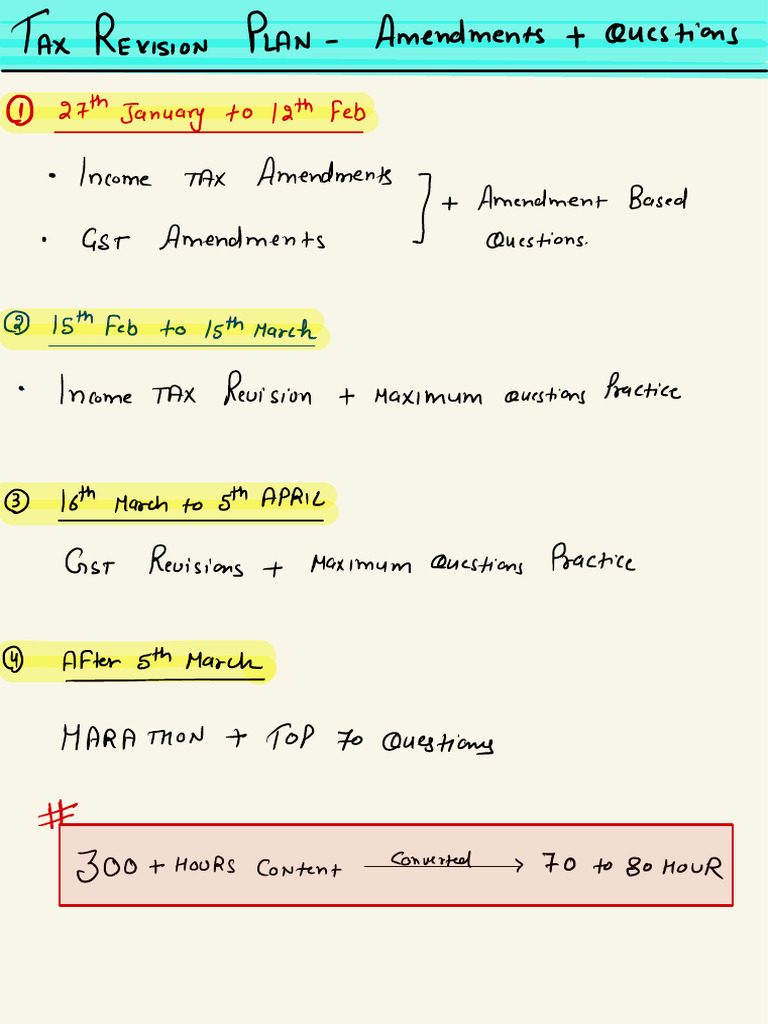 TAX REVISION PLAN - Amendments + Questions
① 27th January to 12th Feb
• Income TAX Amendments
+ Amendment Based
• GST Amendments
Questions.
② 15th Feb to 15th March
• Income TAX Revision + MAXIMUM Questions Practice
③ 16th March to 5th APRIL
GST Revisions + MAXIMUM Questions Practice
④ AFter 5th March
MARATHON + TOP 70 Questions
#
300 + HOURS Content Converted → 70 to 80 HOUR